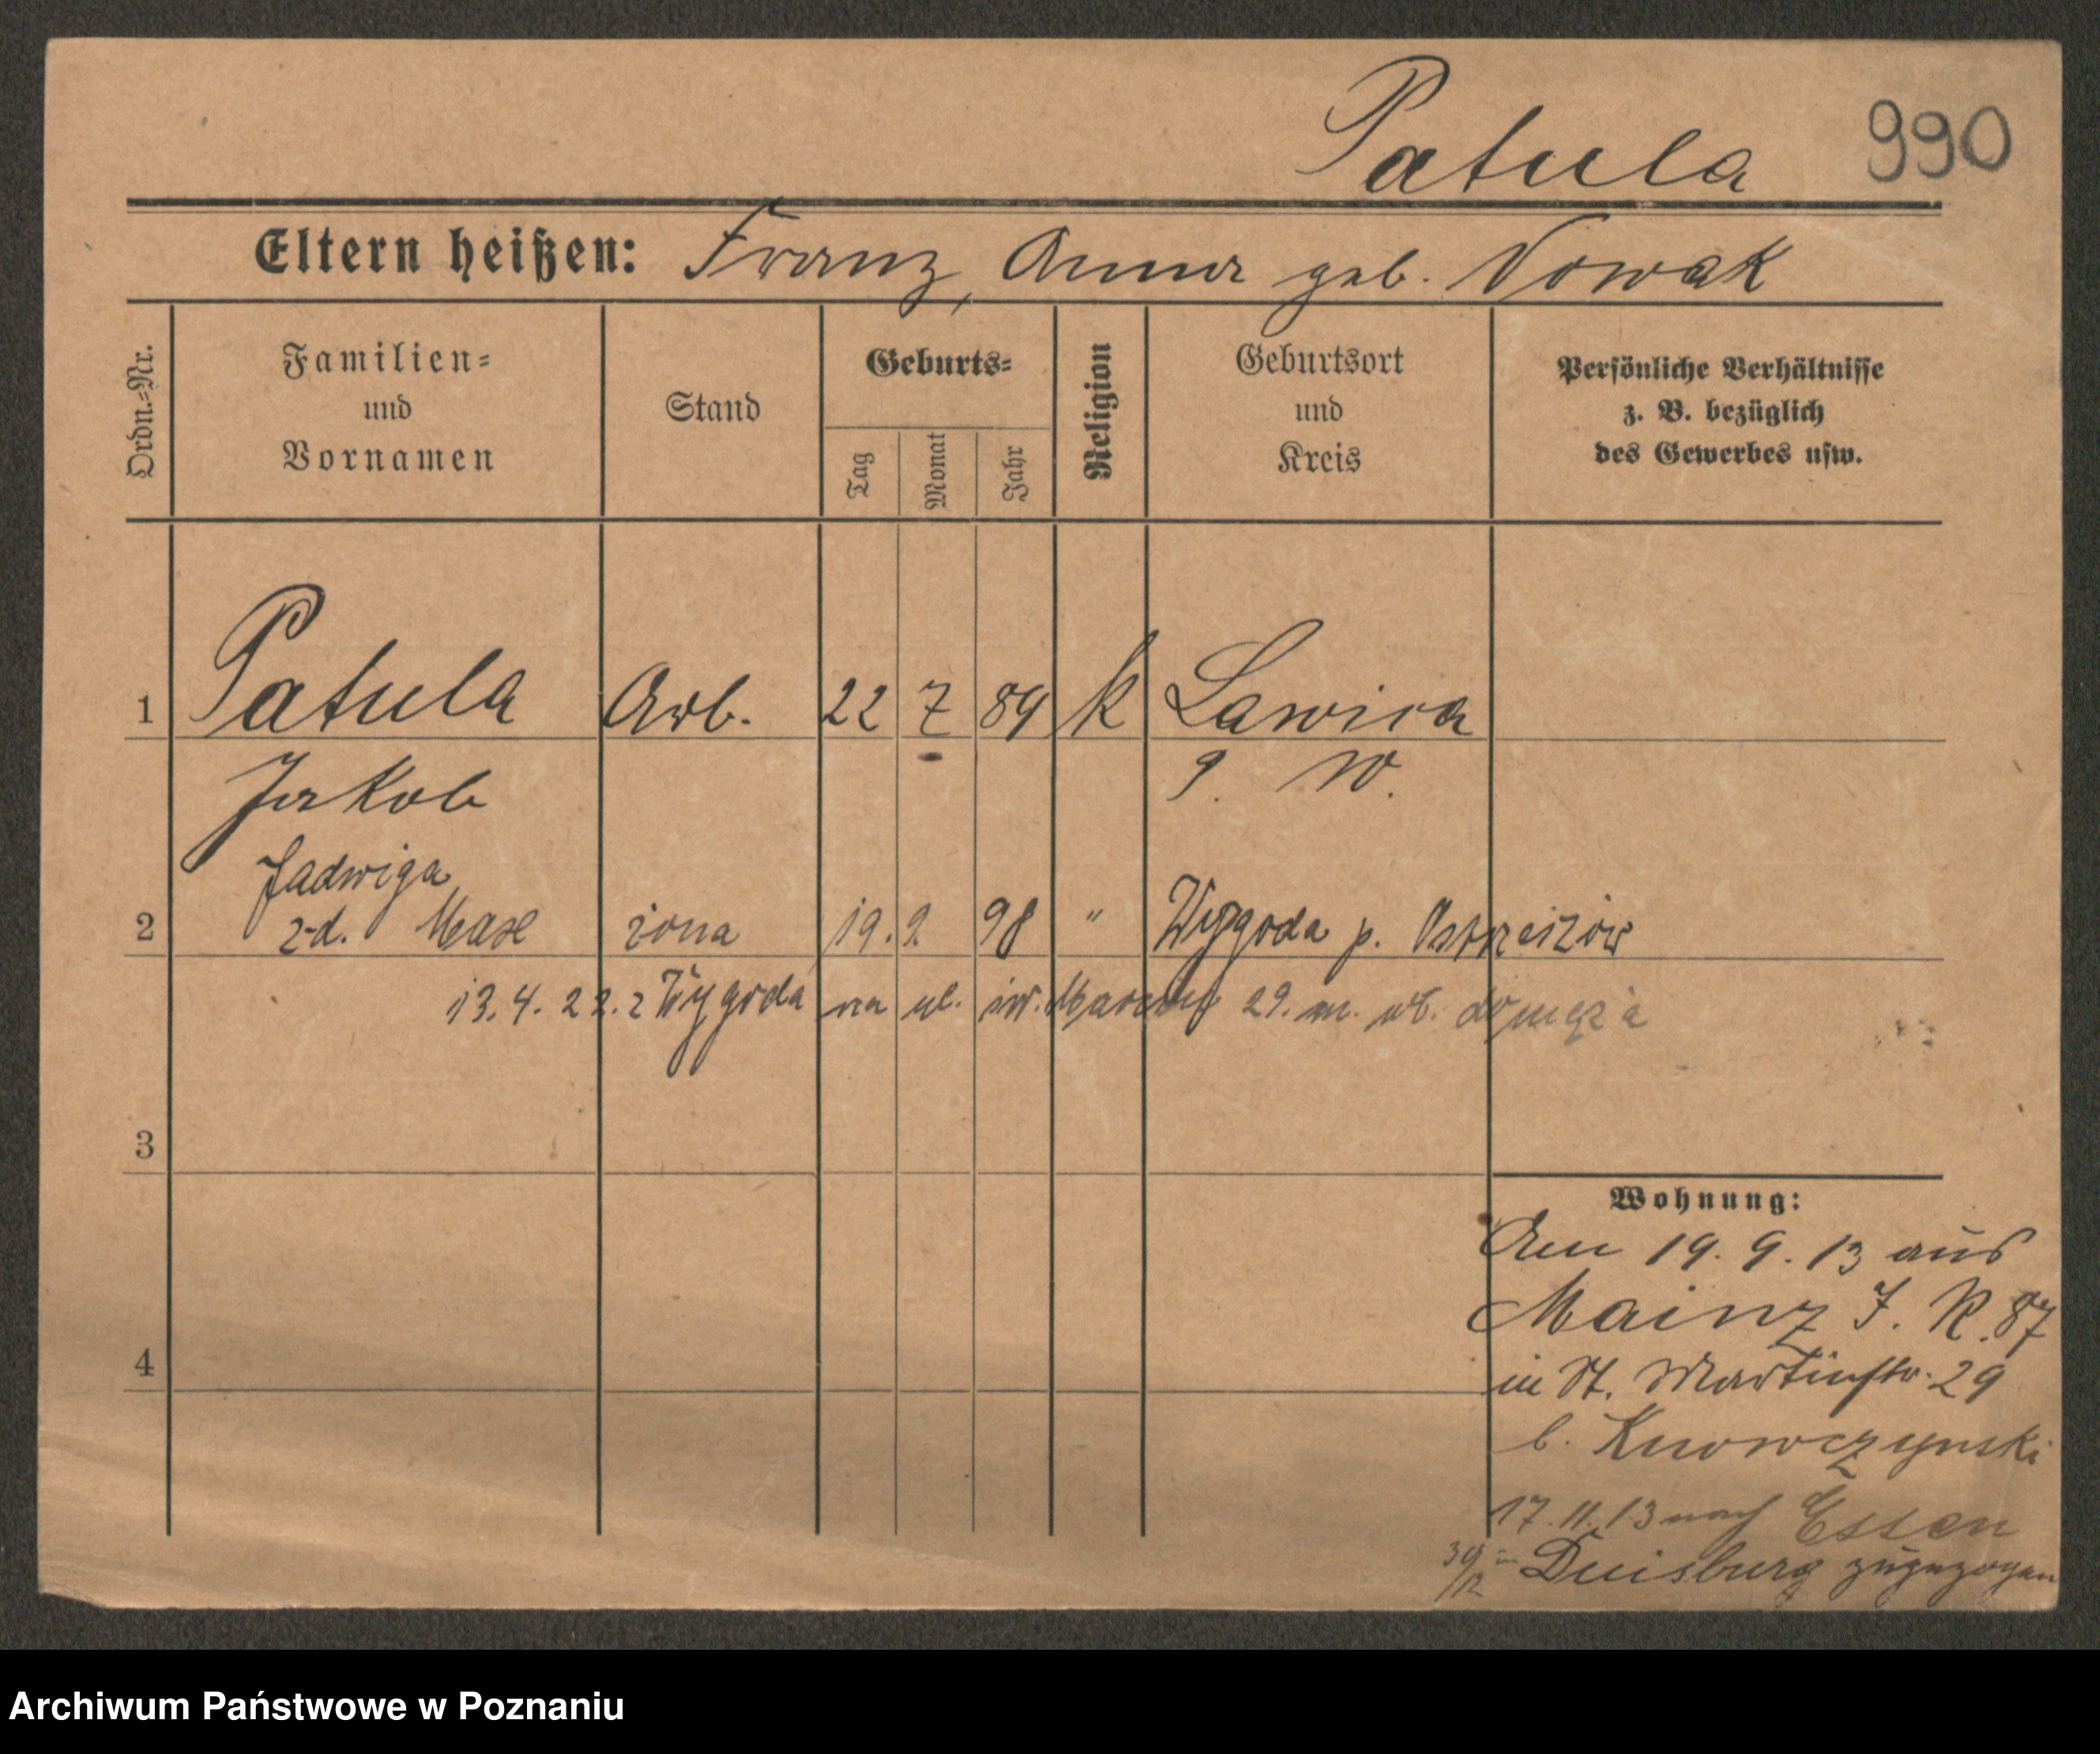 Patula 990
Eltern heißen: Franz, Anna geb. Nowak
Ordn.-Nr.
Familien-
und
Vornamen
Stand
Geburts-
Tag
Monat
Jahr
Religion
Geburtsort
und
Kreis
Persönliche Verhältnisse
z. B. bezüglich
des Gewerbes usw.
1 Patula Arb. 22 7 89 k Lawica
Jakob P. W.
Jadwiga
2 z d. żona 19. 9. 98 " Wygoda p.
13. 4. 22. z Wygoda na ul. św. 29. m. do męża
3
4
Wohnung:
Am 19. 9. 13 aus
Mainz J. R. 87
in St. Martinstr. 29
b.
17. 11. 13 nach Essen
Duisburg zugezogen
Archiwum Państwowe w Poznaniu